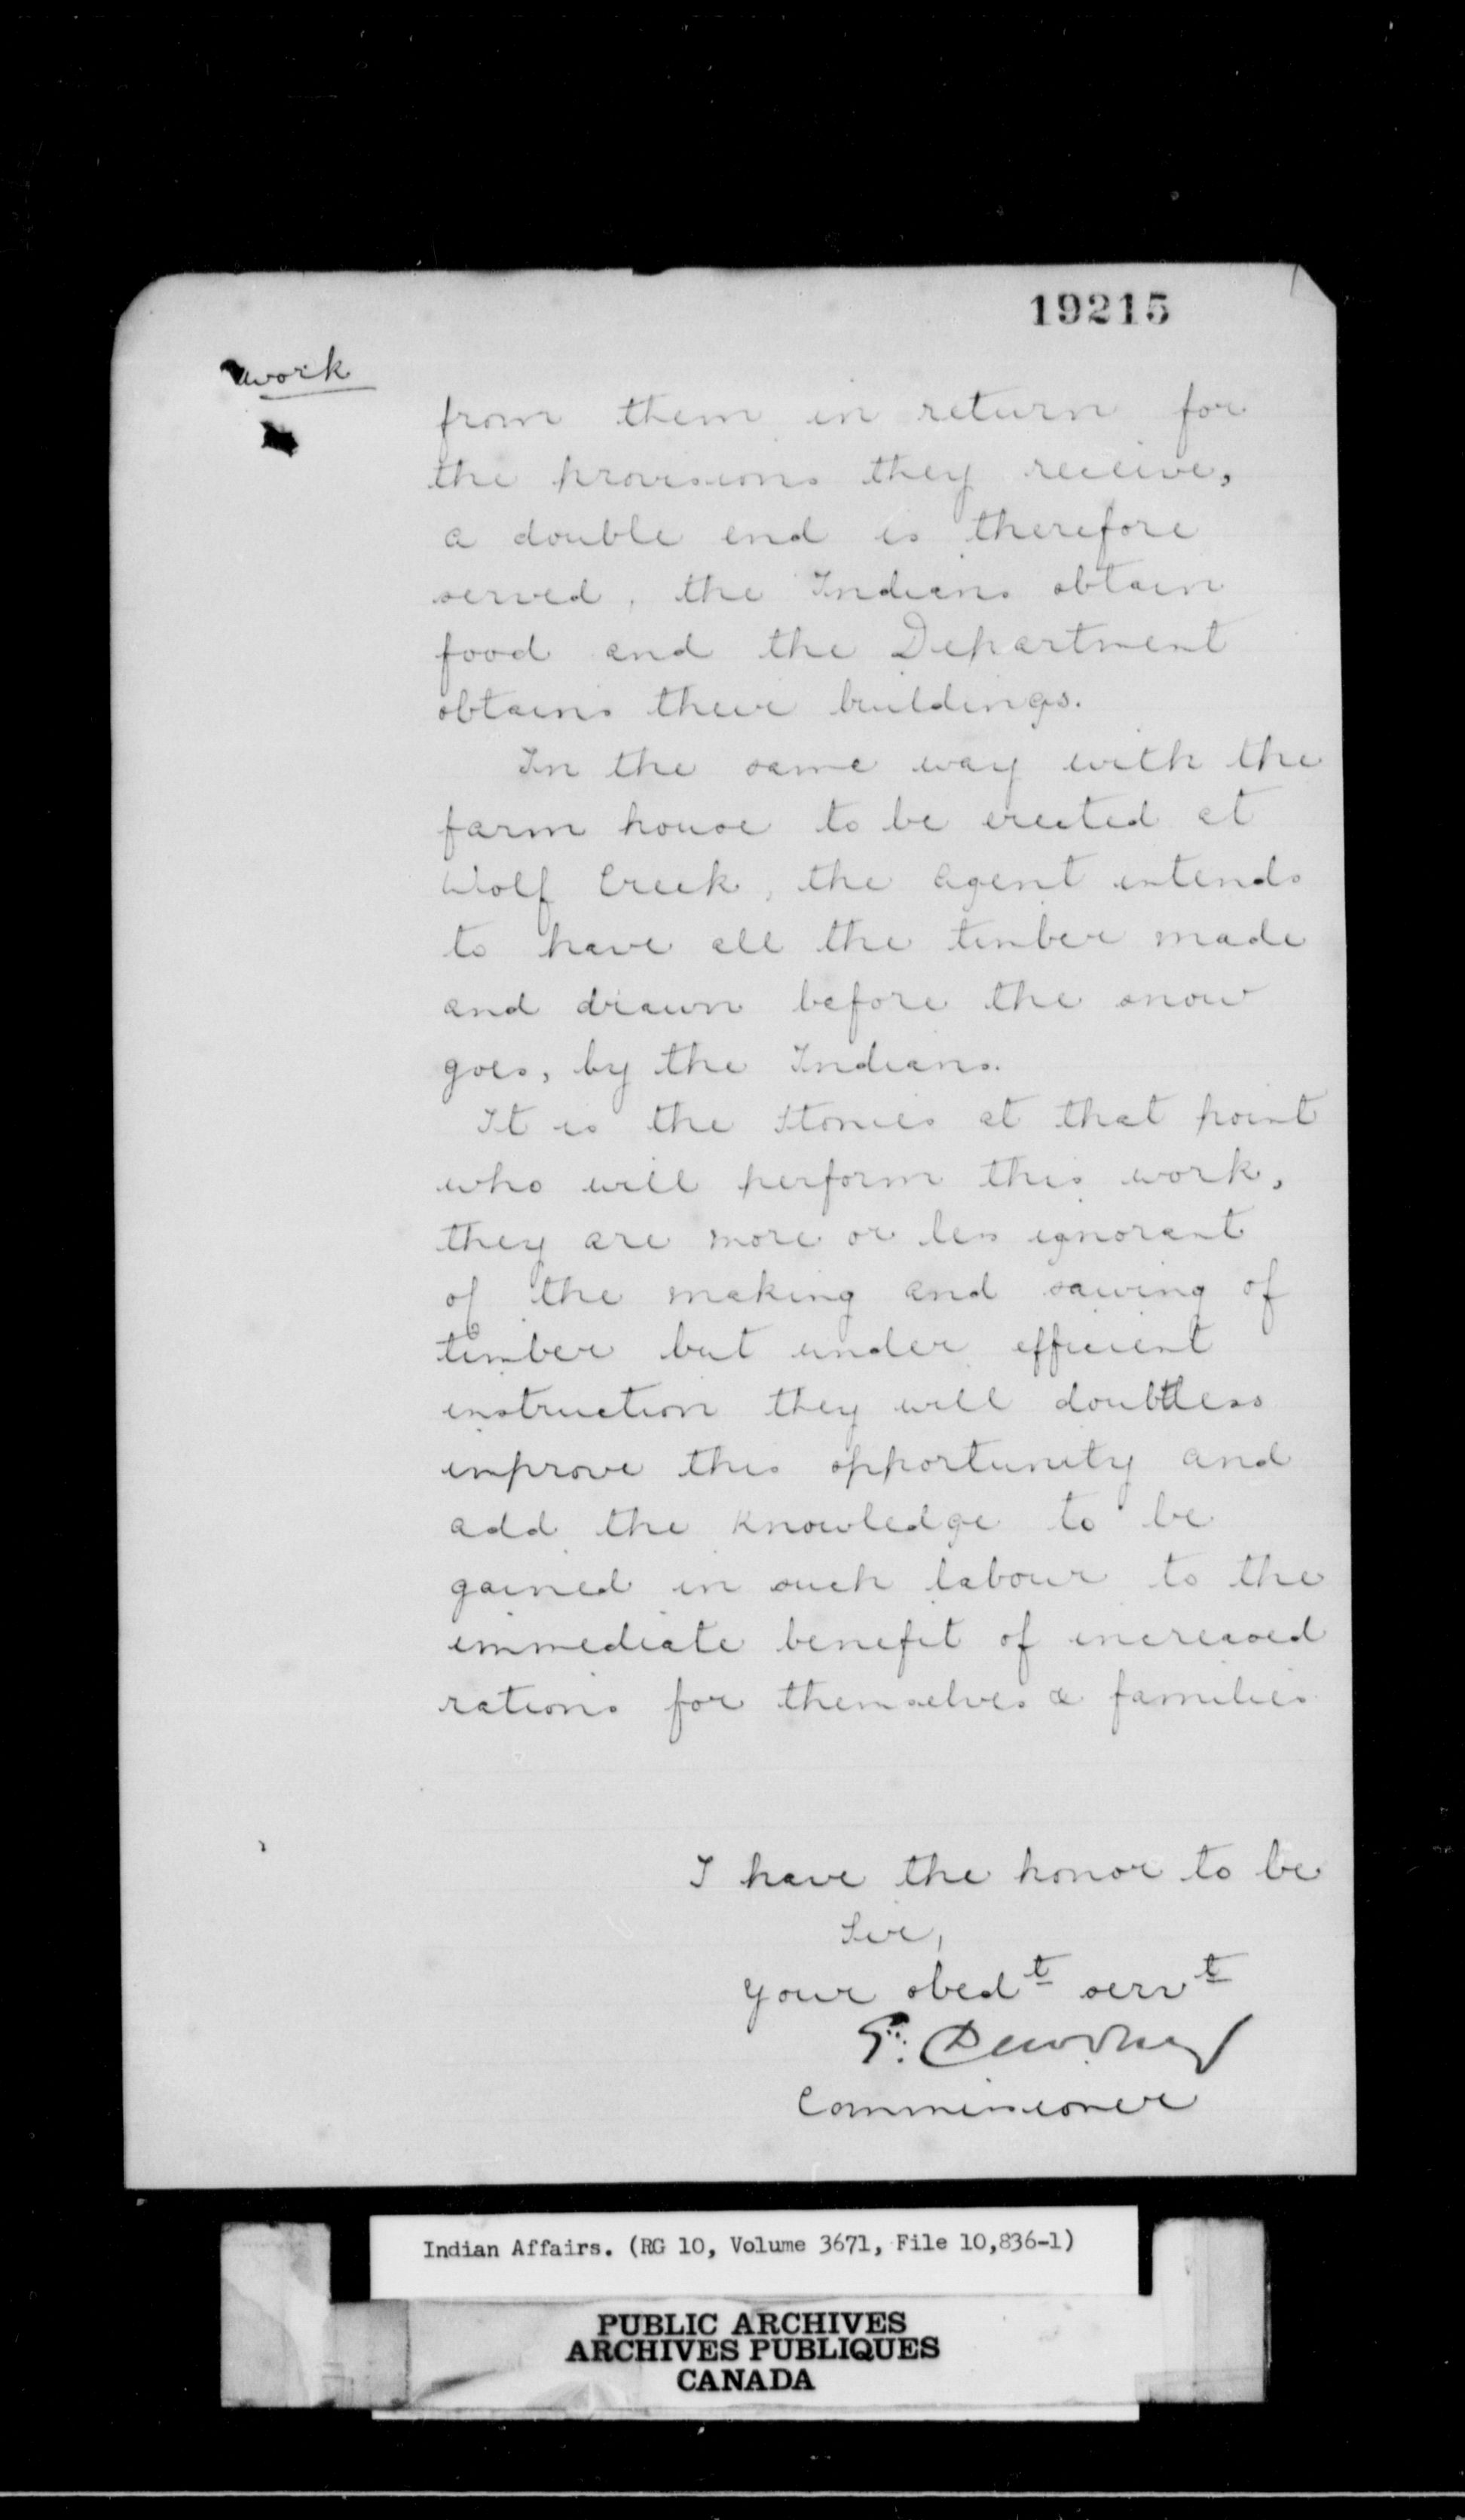 19215
work
from them in return for
the provisions they receive,
a double end is therefore
served, the Indians obtain
food and the Department
obtains their buildings.
In the same way with the
farm house to be erected at
Wolf Creek, the agent intends
to have all the timber made
and drawn before the snow
goes, by the Indians.
It is the Stonies at that point
who will perform this work,
they are more or less ignorant
of the making and sawing of
timber but under efficient
instruction they will doubtless
improve this opportunity and
add the knowledge to be
gained in such labour to the
immediate benefit of increased
rations for themselves & families
I have the honor to be
Sir,
Your obedt servt
E. Dewdney
Commissioner
Indian Affairs. (RG 10, Volume 3671, File 10,836-1)
PUBLIC ARCHIVES
ARCHIVES PUBLIQUES
CANADA